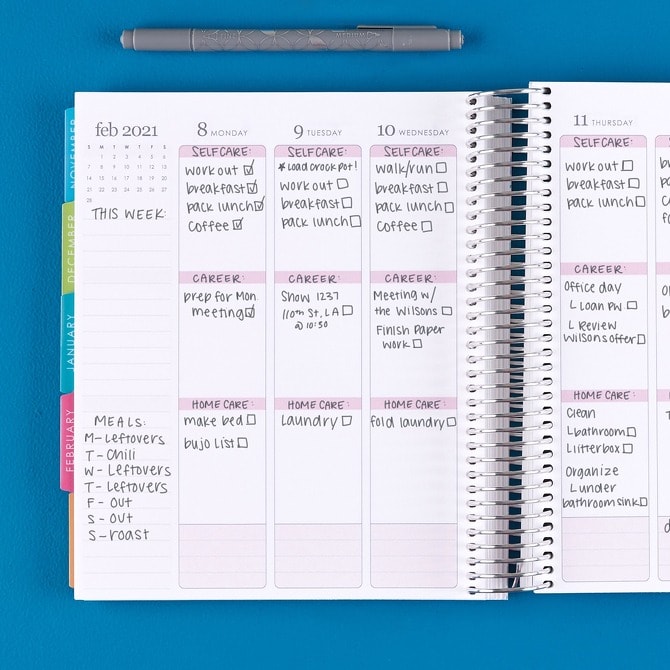 NOVEMBER
DECEMBER
JANUARY
FEBRUARY
feb 2021
S M T W T F S
1 2 3 4 5 6
7 8 9 10 11 12 13
14 15 16 17 18 19 20
21 22 23 24 25 26 27
28
THIS WEEK:
MEALS:
M- Leftovers
T- Chili
W- Leftovers
T- Leftovers
F- OUT
S- OUT
S- roast
8 MONDAY
SELFCARE:
work out
breakfast
pack lunch
Coffee
CAREER:
prep for Mon.
meeting
HOME CARE:
make bed
bujo list
9 TUESDAY
SELFCARE:
*Load crock pot!
work out
breakfast
pack lunch
CAREER:
Show 1237
110th St, LA
@ 10:50
HOME CARE:
laundry
10 WEDNESDAY
SELFCARE:
walk/run
breakfast
pack lunch
Coffee
CAREER:
Meeting w/
the Wilsons
Finish Paper
work
HOME CARE:
fold laundry
11 THURSDAY
SELFCARE:
work out
breakfast
pack lunch
CAREER:
Office day
L Loan PW
L Review
Wilsons offer
HOME CARE:
Clean
L bathroom
L litter box
Organize
L under
bathroom sink